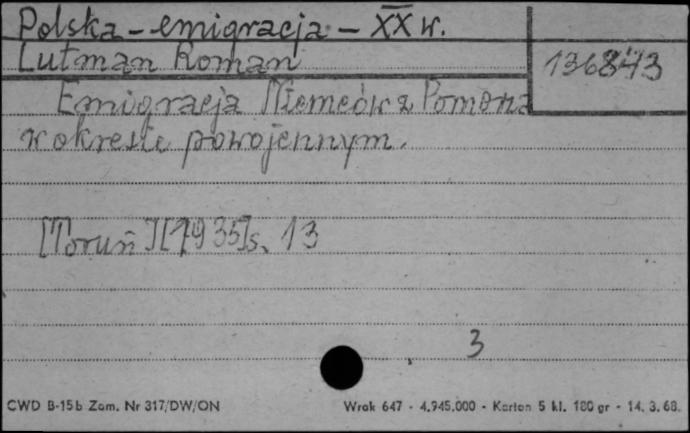 Polska - emigracja - XX w.
Lutman Roman
136843
Emigracja Niemców z Pomorza
w okresie powojennym.
[Toruń] [1935] s. 13
3
CWD B-15b Zam. Nr 317/DW/ON
Wrak 647 - 4.945.000 - Karton 5 kl. 180 gr - 14. 3. 68.